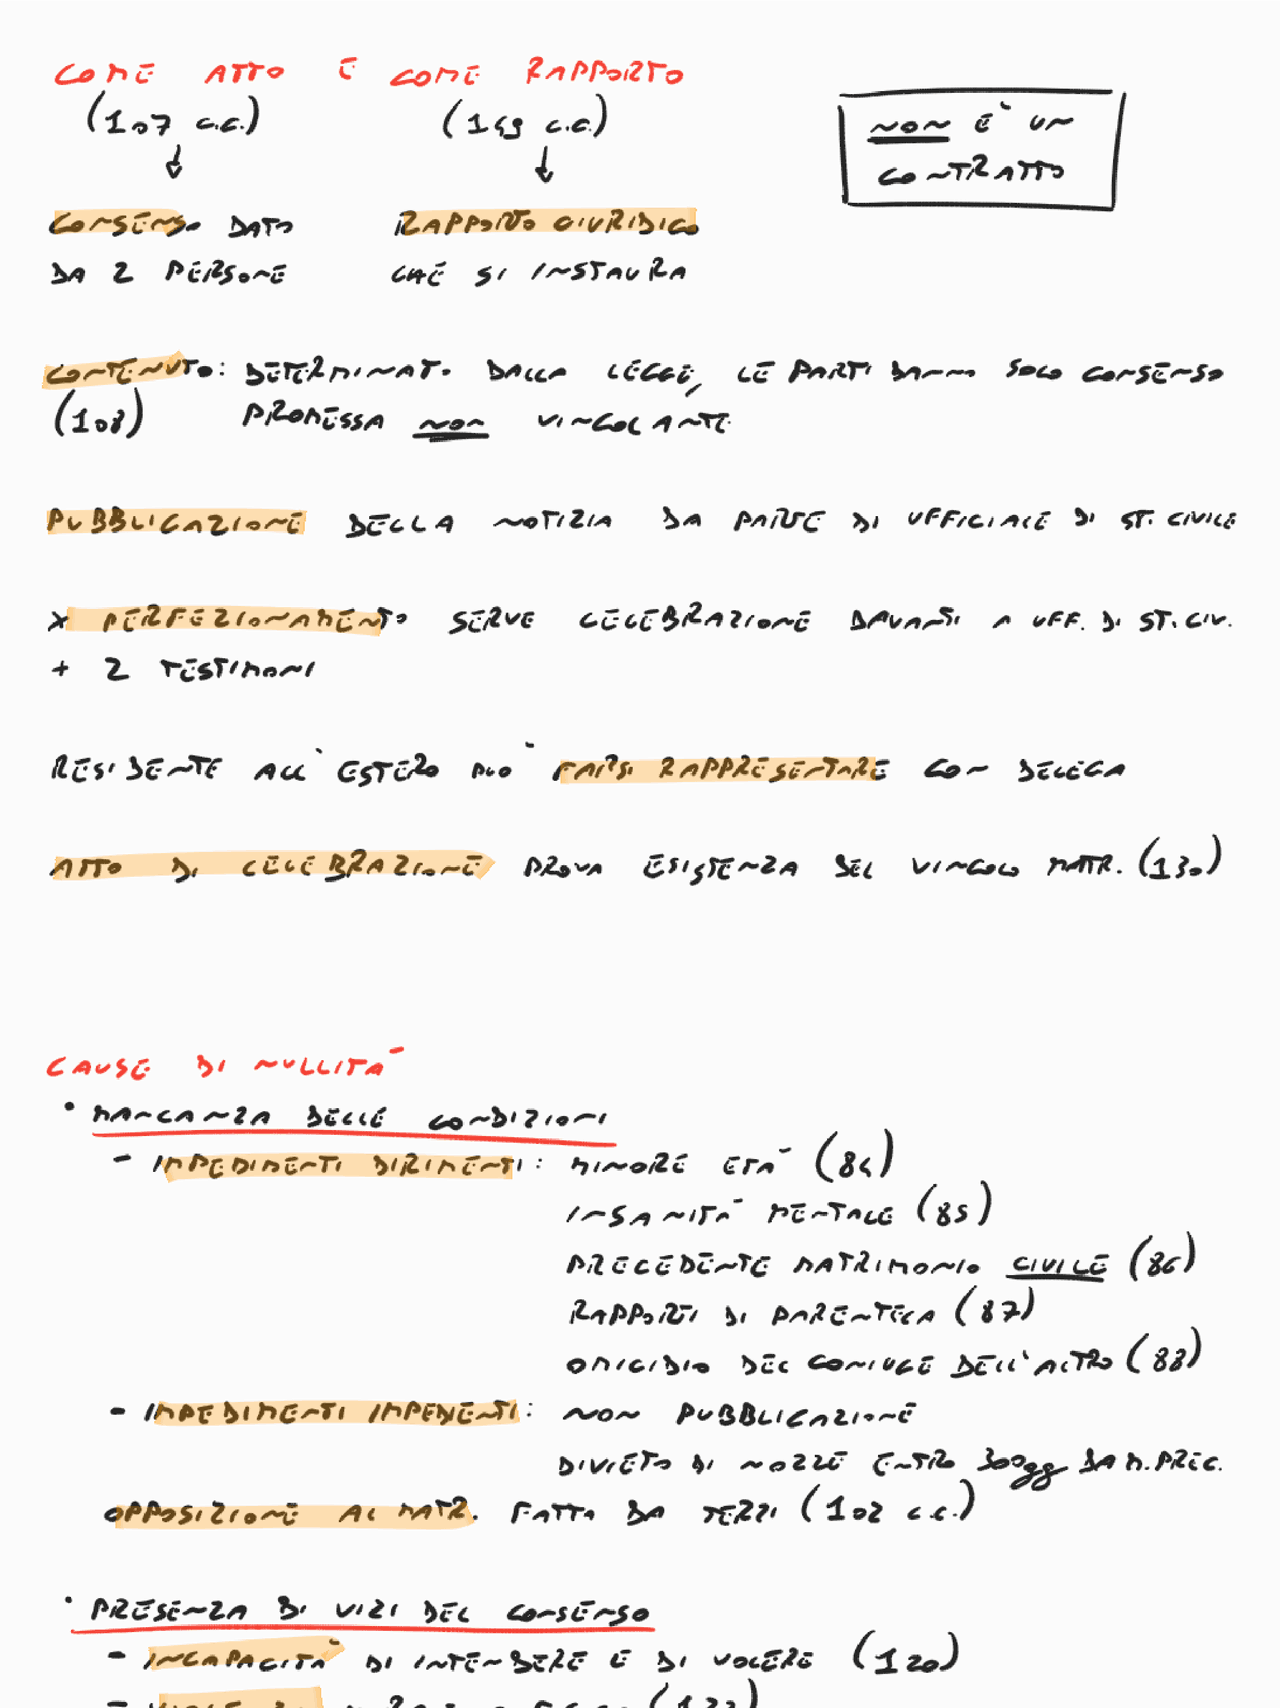 COME ATTO E COME RAPPORTO
(107 c.c.) (149 c.c.)
NON E' UN
CONTRATTO
CONSENSO DATO RAPPORTO GIURIDICO
DA 2 PERSONE CHE SI INSTAURA
CONTENUTO: DETERMINATO DALLA LEGGE, LE PARTI DANNO SOLO CONSENSO
(108) PROMESSA NON VINCOLANTE
PUBBLICAZIONE DELLA NOTIZIA DA PARTE DI UFFICIALE DI ST. CIVILE
X PERFEZIONAMENTO SERVE CELEBRAZIONE DAVANTI A UFF. DI ST. CIV.
+ 2 TESTIMONI
RESIDENTE ALL'ESTERO PUO' FARSI RAPPRESENTARE CON DELEGA
ATTO DI CELEBRAZIONE PROVA ESISTENZA DEL VINCOLO MATR. (130)
CAUSE DI NULLITA'
• MANCANZA DELLE CONDIZIONI
- IMPEDIMENTI DIRIMENTI: MINORE ETA' (84)
INSANITA' MENTALE (85)
PRECEDENTE MATRIMONIO CIVILE (86)
RAPPORTI DI PARENTELA (87)
OMICIDIO DEL CONIUGE DELL'ALTRO (88)
- IMPEDIMENTI IMPEDIENTI: NON PUBBLICAZIONE
DIVIETO DI NOZZE ENTRO 300gg DA M. PREC.
OPPOSIZIONE AL MATR. FATTA DA TERZI (102 c.c.)
• PRESENZA DI VIZI DEL CONSENSO
- INCAPACITA' DI INTENDERE E DI VOLERE (120)